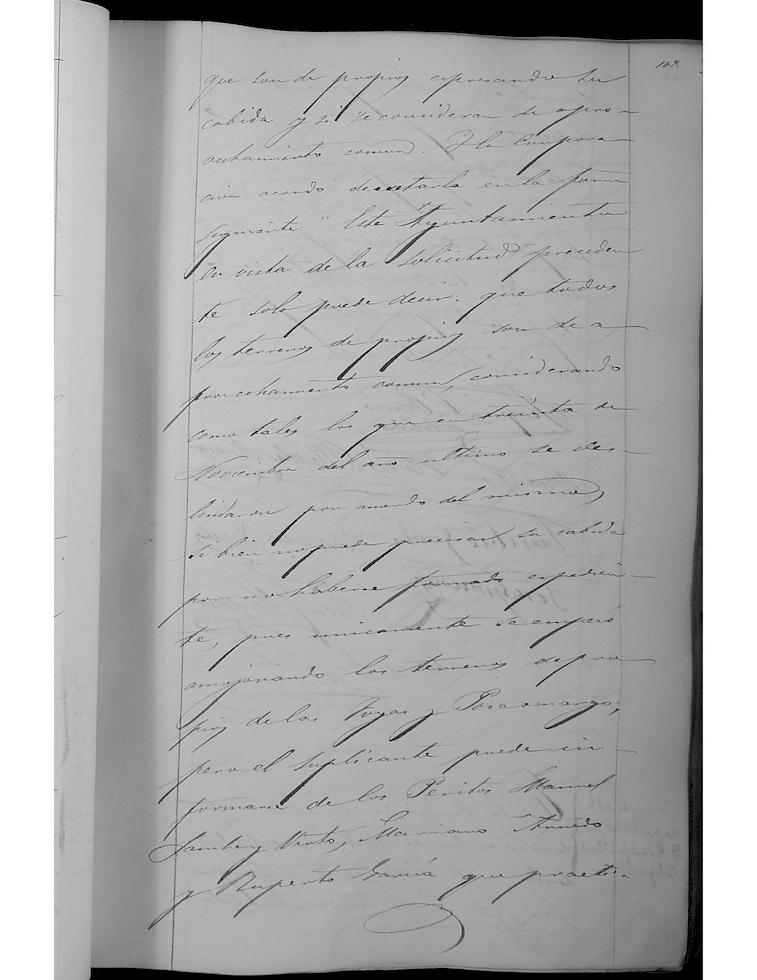 que son de propios espresando su
cabida y si se consideran de apro-
vechamiento comun. Y la Corpora-
cion acordó decretarla en la forma
siguiente: "Este Ayuntamiento
en vista de la solicitud preceden
te solo puede decir: que todos
los terrenos de propios son de a-
provechamiento comun, considerando
como tales los que en treinta de
Noviembre del año ultimo se des-
lindaron por acuerdo del mismo,
si bien no puede precisar su cabida
por no haberse formado espedien-
te, pues unicamente se empezó
amojonando los terrenos de pro
pios de las Yoyas y
pero el suplicante puede in-
formarse de los Peritos Manuel
y Mariano
y Ruperto Garcia que practi-